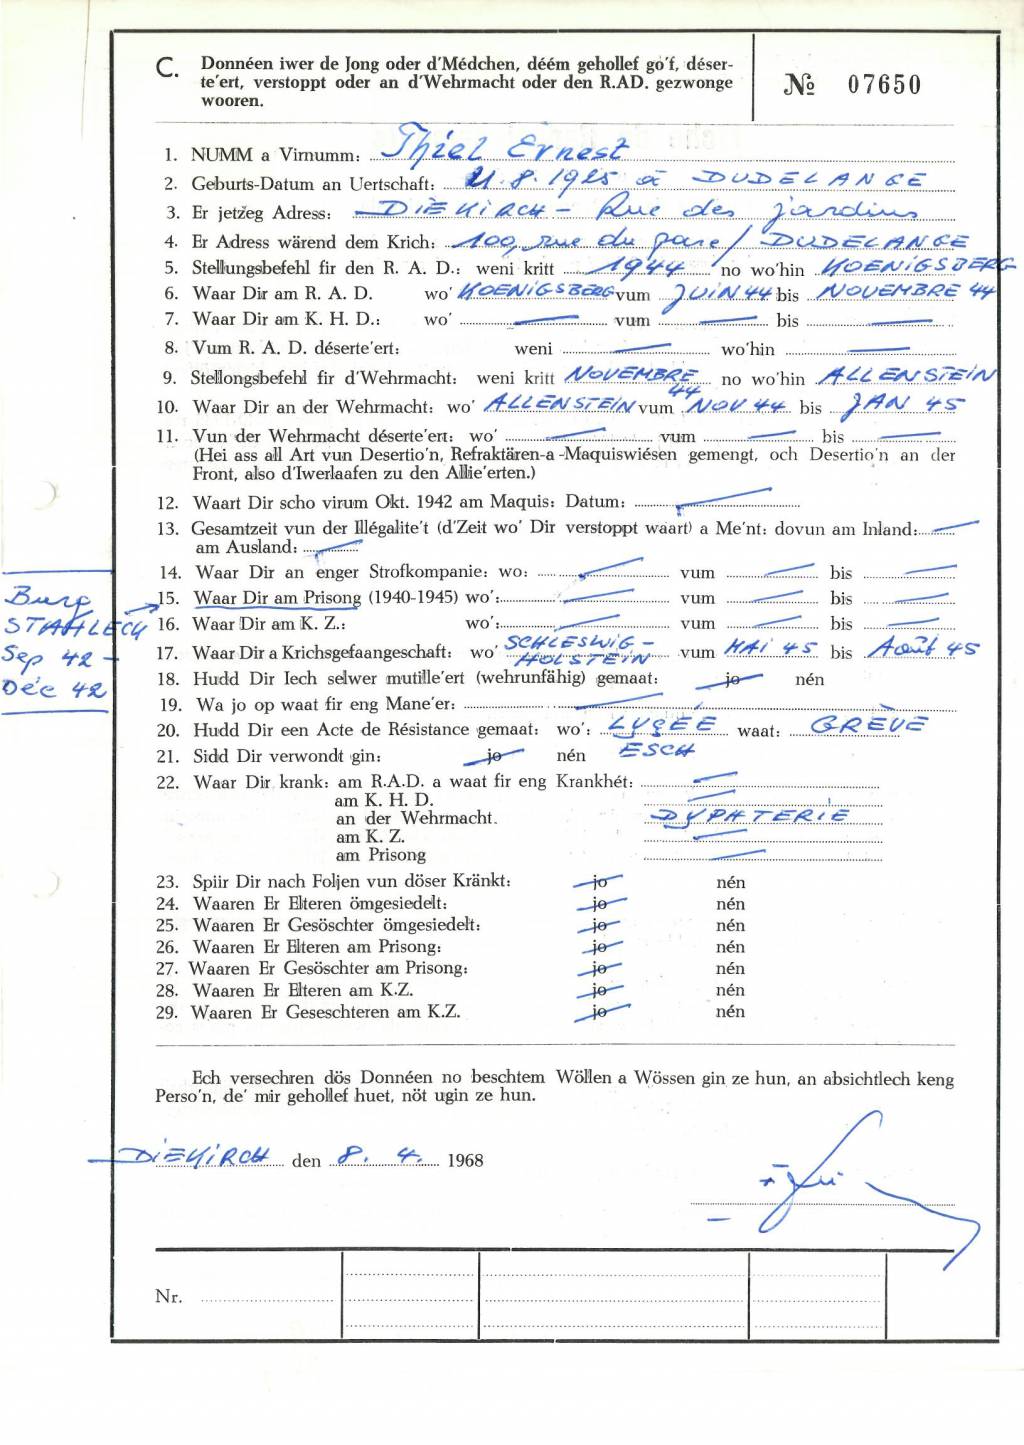 C. Donnéen iwer de Jong oder d'Médchen, déém gehollef gó'f, déser-
te'ert, verstoppt oder an d'Wehrmacht oder den R.AD. gezwonge
wooren.
№ 07650
1. NUMM a Virnumm: Thiel Ernest
2. Geburts-Datum an Uertschaft: 21.8.1925 à DUDELANGE
3. Er jetzeg Adress: DIEKIRCH - Rue des jardins
4. Er Adress wärend dem Krich: 100, rue du gare / DUDELANGE
5. Stellungsbefehl fir den R. A. D.: weni kritt 1944 no wo'hin KOENIGSBERG
6. Waar Dir am R. A. D. wo' KOENIGSBERG vum JUIN 44 bis NOVEMBRE 44
7. Waar Dir am K. H. D.: wo' — vum — bis —
8. Vum R. A. D. déserte'ert: weni — wo'hin —
9. Stellongsbefehl fir d'Wehrmacht: weni kritt NOVEMBRE 44 no wo'hin ALLENSTEIN
10. Waar Dir an der Wehrmacht: wo' ALLENSTEIN vum NOV 44 bis JAN 45
11. Vun der Wehrmacht déserte'ert: wo' — vum — bis —
(Hei ass all Art vun Desertio'n, Refraktären-a-Maquiswiésen gemengt, och Desertio'n an der
Front, also d'Iwerlaafen zu den Allie'erten.)
12. Waart Dir scho virum Okt. 1942 am Maquis: Datum: —
13. Gesamtzeit vun der Illégalite't (d'Zeit wo' Dir verstoppt waart) a Me'nt: dovun am Inland: —
am Ausland: —
14. Waar Dir an enger Strofkompanie: wo: — vum — bis —
Burg
STAHLECK
Sep 42 -
Déc 42
15. Waar Dir am Prisong (1940-1945) wo': — vum — bis —
16. Waar Dir am K. Z.: wo': — vum — bis —
17. Waar Dir a Krichsgefaangeschaft: wo' SCHLESWIG-
HOLSTEIN vum MAI 45 bis Août 45
18. Hudd Dir Iech selwer mutille'ert (wehrunfähig) gemaat: jo nén
19. Wa jo op waat fir eng Mane'er: —
20. Hudd Dir een Acte de Résistance gemaat: wo': LYCÉE waat: GRÈVE
ESCH
21. Sidd Dir verwondt gin: jo nén
22. Waar Dir krank: am R.A.D. a waat fir eng Krankhét: —
am K. H. D. —
an der Wehrmacht. DYPHTERIE
am K. Z. —
am Prisong —
23. Spiir Dir nach Foljen vun döser Kränkt: jo nén
24. Waaren Er Elteren ömgesiedelt: jo nén
25. Waaren Er Gesöschter ömgesiedelt: jo nén
26. Waaren Er Elteren am Prisong: jo nén
27. Waaren Er Gesöschter am Prisong: jo nén
28. Waaren Er Elteren am K.Z. jo nén
29. Waaren Er Geseschteren am K.Z. jo nén
Ech versechren dös Donnéen no beschtem Wöllen a Wössen gin ze hun, an absichtlech keng
Perso'n, de' mir gehollef huet, nöt ugin ze hun.
DIEKIRCH den 8. 4. 1968
Nr.